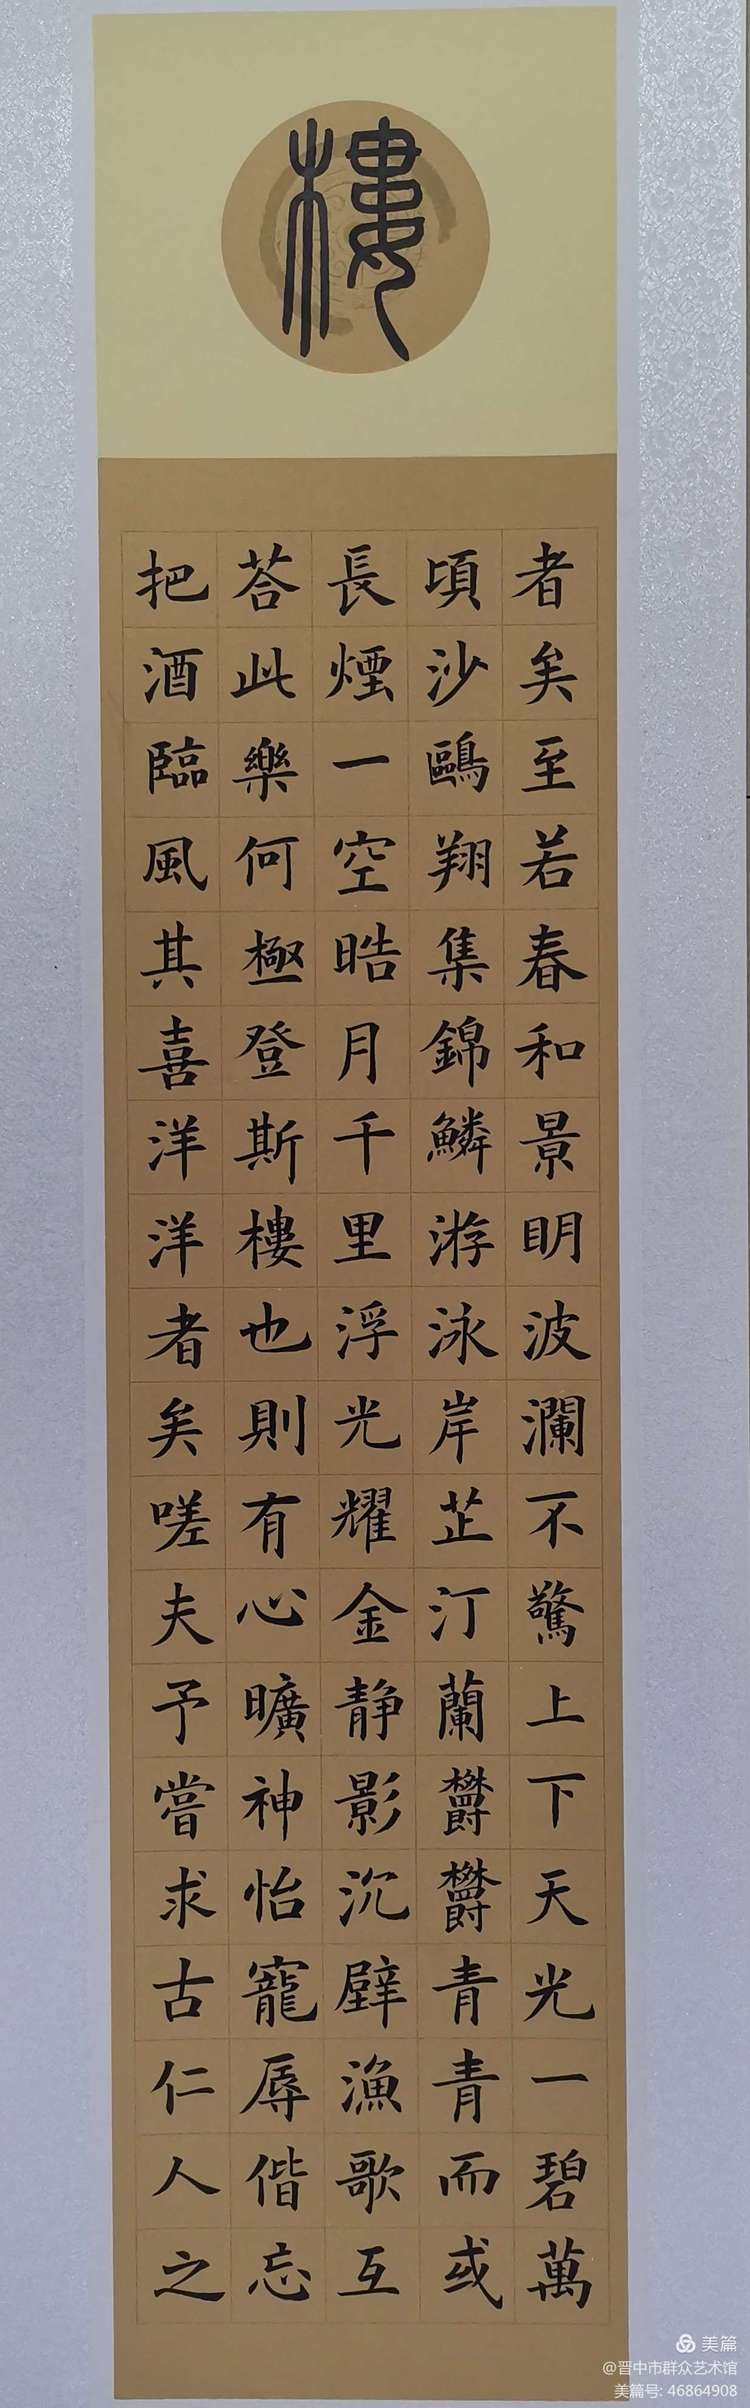 樓
者矣至若春和景明波瀾不驚上下天光一碧萬
頃沙鷗翔集錦鱗游泳岸芷汀蘭欝欝青青而或
長煙一空晧月千里浮光耀金静影沉壁漁歌互
荅此樂何極登斯樓也則有心曠神怡寵辱偕忘
把酒臨風其喜洋洋者矣嗟夫予嘗求古仁人之
美篇
@晋中市群众艺术馆
美篇号: 46864908